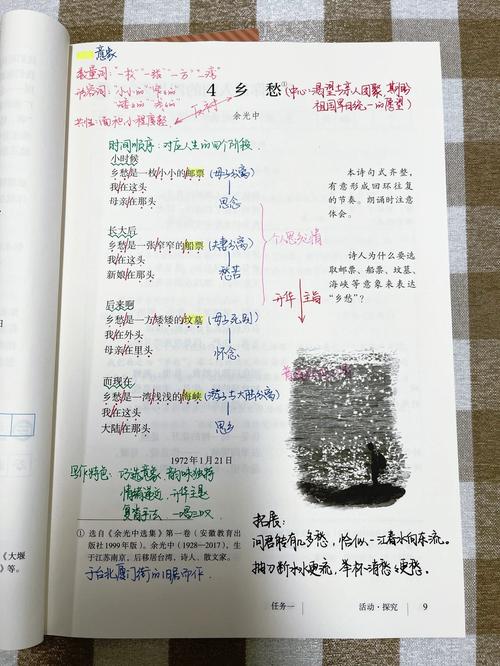 意象
数量词:"一枚""一张""一方""一湾"
形容词:"小小的""窄窄的"
"矮矮的""浅浅的"
共性:面积小,程度轻
反衬
4 乡 愁①
(中心:渴望与亲人团聚,期盼
祖国早日统一的愿望)
余光中
时间顺序:对应人生的四个阶段
小时候
乡愁是一枚小小的邮票 (母子分离)
我在这头
母亲在那头 思念
长大后
乡愁是一张窄窄的船票 (夫妻分离)
我在这头
新娘在那头 愁苦
后来啊
乡愁是一方矮矮的坟墓 (母子死别)
我在外头
母亲在里头 怀念
而现在
乡愁是一湾浅浅的海峡 (游子与大陆分离)
我在这头
大陆在那头 思乡
1972年1月21日
个人思乡情
升华 主旨
本诗句式齐整,
有意形成回环往复
的节奏。朗诵时注意
体会。
诗人为什么要选
取邮票、船票、坟墓、
海峡等意象来表达
“乡愁”?
写作特色:巧选意象,韵味独特
情感递进,升华主题
复沓手法,一唱三叹
① 选自《余光中选集》第一卷(安徽教育出
版社1999年版)。余光中(1928—2017),生
于江苏南京,后移居台湾,诗人、散文家。
于台北厦门街的旧居而作
拓展:
问君能有几多愁,恰似一江春水向东流。
抽刀断水水更流,举杯消愁愁更愁。
任务一
活动·探究 9
《大堰
》等。